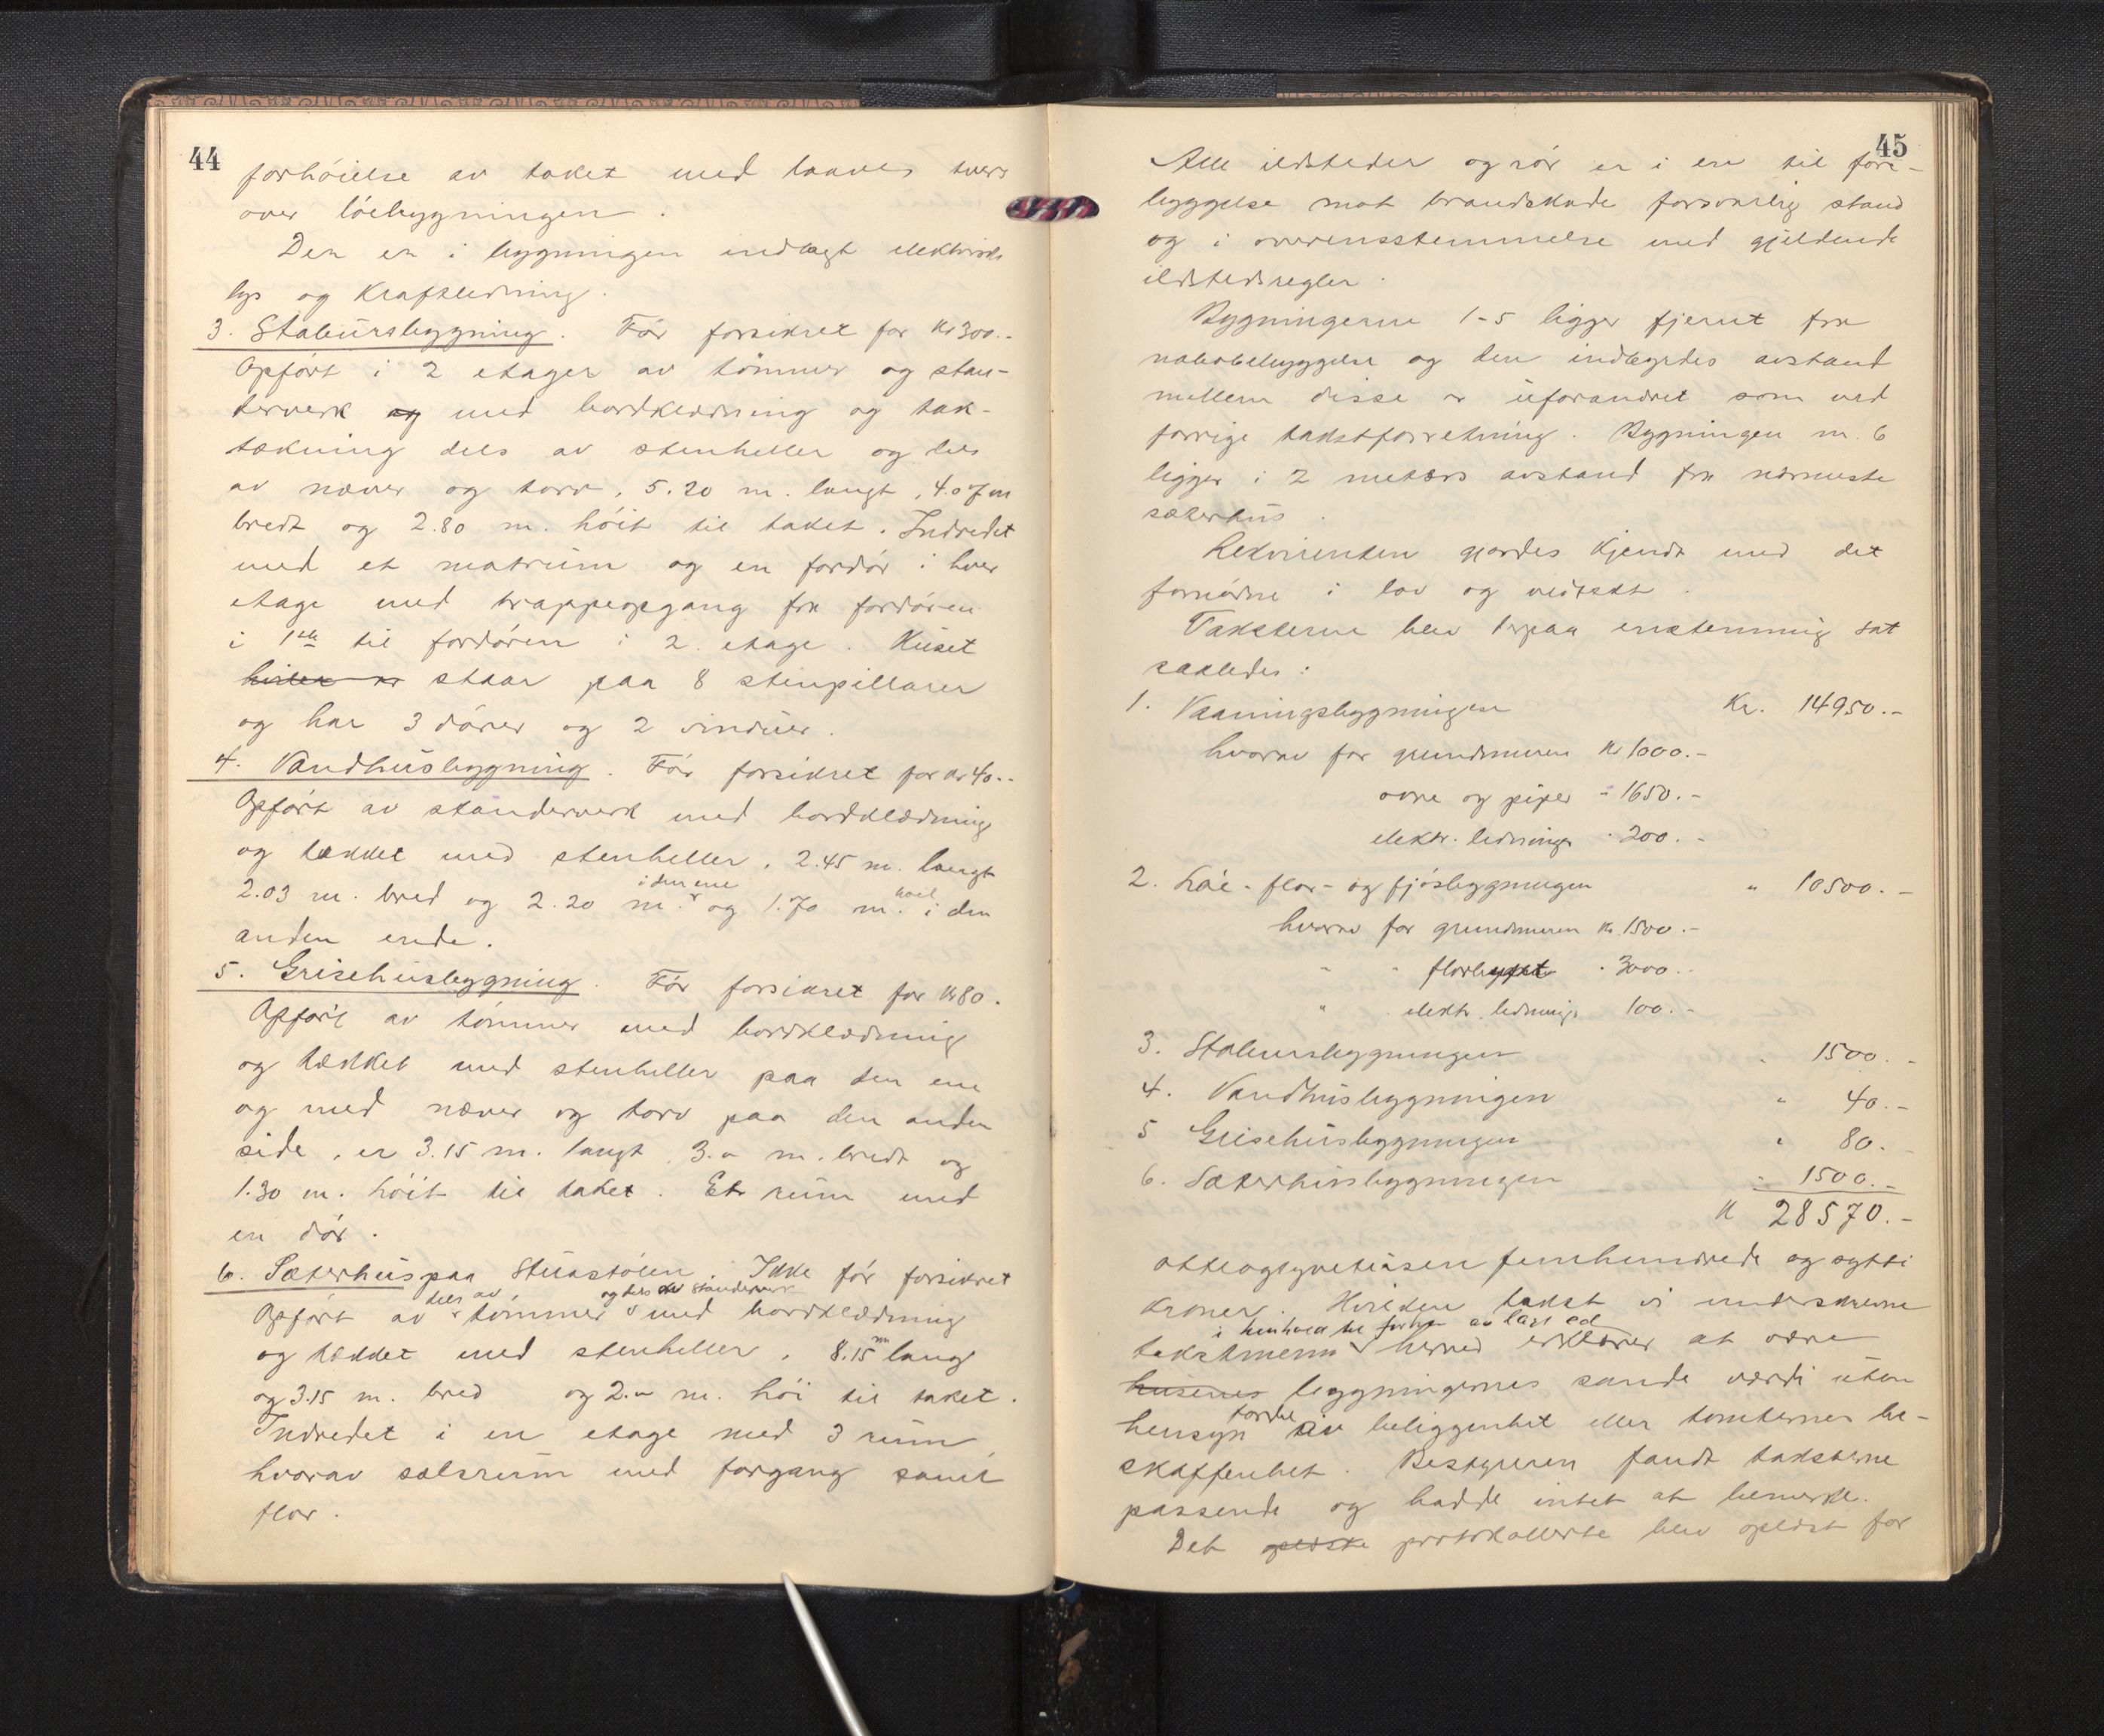 44
forhöielse av taket med laaves tvers
over löebygningen.
Der er i bygningen indlagt elektrisk
lys og kraftledning.
3. Stabursbygning. Før forsikret for Kr 300.-
Opført i 2 etager av tømmer og stan-
derverk og med bordklædning og tak-
tækning dels av stenheller og dels
av næver og torv, 5.20 m. langt, 4.07 m
bredt og 2.80 m. höit til taket. Indredet
med et matrum og en fordör i hver
etage med trappeopgang fra fordören
i 1ste til fordören i 2. etage. Huset
staar paa 8 stenpillarer
og har 3 dörer og 2 vinduer.
4. Vandhusbygning. Før forsikret for Kr 40.-
Opført av standerverk med bordklædning
og tækket med stenheller, 2.45 m. langt
2.03 m. bred og 2.20 m. i den ene og 1.70 m. höit i den
anden ende.
5. Grisehusbygning. Før forsikret for Kr 80.
Opført av tömmer med bordklædning
og tækket med stenheller paa den ene
og med næver og torv paa den anden
side, er 3.15 m. langt, 3.- m. bredt og
1.30 m. höit til taket. Et rum med
en dör.
6. Sæterhus paa Stuastölen. Ikke för forsikret
Opført av dels av tömmer og dels av standerverk med bordklædning
og tækket med stenheller, 8.15 m lang
og 3.15 m. bred og 2.- m. höi til taket.
Indredet i en etage med 3 rum,
hvorav selsrum med forgang samt
flor.
45
Alle ildsteder og rör er i en til fore-
byggelse mot brandskade forsvarlig stand
og i overensstemmelse med gjeldende
ildstedsregler.
Bygningerne 1-5 ligger fjernt fra
nabobebyggelse og den indbyrdes avstand
mellem disse er uforandret som ved
forrige takstforretning. Bygningen nr. 6
ligger i 2 meters avstand fra nærmeste
sæterhus.
Rekvirenten gjordes kjendt med det
fornödne i lov og vedtekt.
Taksterne blev derpaa enstemmig sat
saaledes:
1. Vaaningsbygningen Kr. 14950.-
hvorav for grundmuren Kr 1000.-
ovne og piper " 1650.-
elektr. ledninger " 200.-
2. Löe- flor- og fjösbygningen " 10500.-
hvorav for grundmuren Kr. 1500.-
" " 3000.-
" " elektr. ledninger 100.-
3. Stabursbygningen " 1500.-
4. Vandhusbygningen " 40.-
5 Grisehusbygningen " 80.-
6. Sæterhusbygningen " 1500.-
Kr 28570.-
otteogtyvetusen femhundrede og sytti
kroner. Hvilken takst vi underskrevne
takstmenn i henhold til forhen av lagt ed herved erklærer at være
husenes bygningernes sande værdi uten
hensyn til beliggenhet eller tomternes be-
skaffenhet. Bestyreren fandt taksterne
passende og hadde intet at bemerke.
Det oplæste protokollerte blev oplæst for